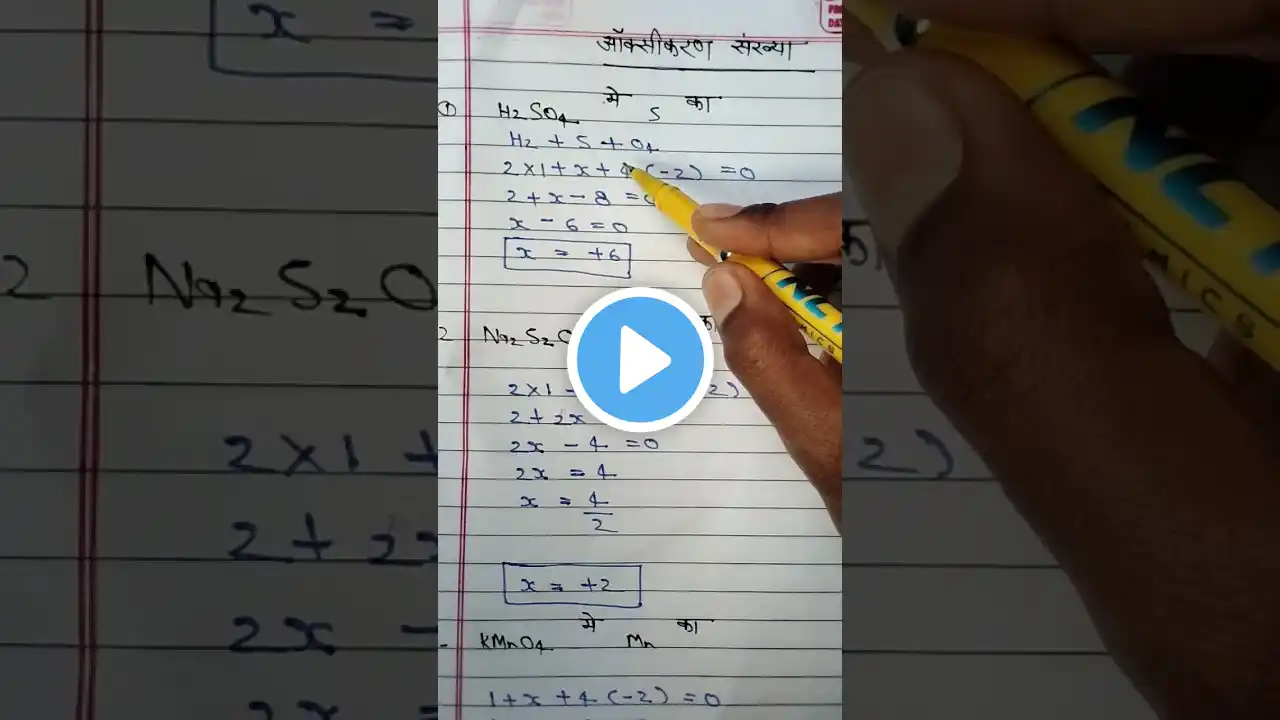 ऑक्सीकरण संख्या
① H₂SO₄ में S का
H₂ + S + O₄
2×1 + x + 4(-2) = 0
2 + x - 8 =
x - 6 = 0
x = +6
2 Na₂S₂O का
2×1 2)
2 + 2x
2x - 4 = 0
2x = 4
x = 4/2
x = +2
KMnO₄ में Mn का
1 + x + 4(-2) = 0